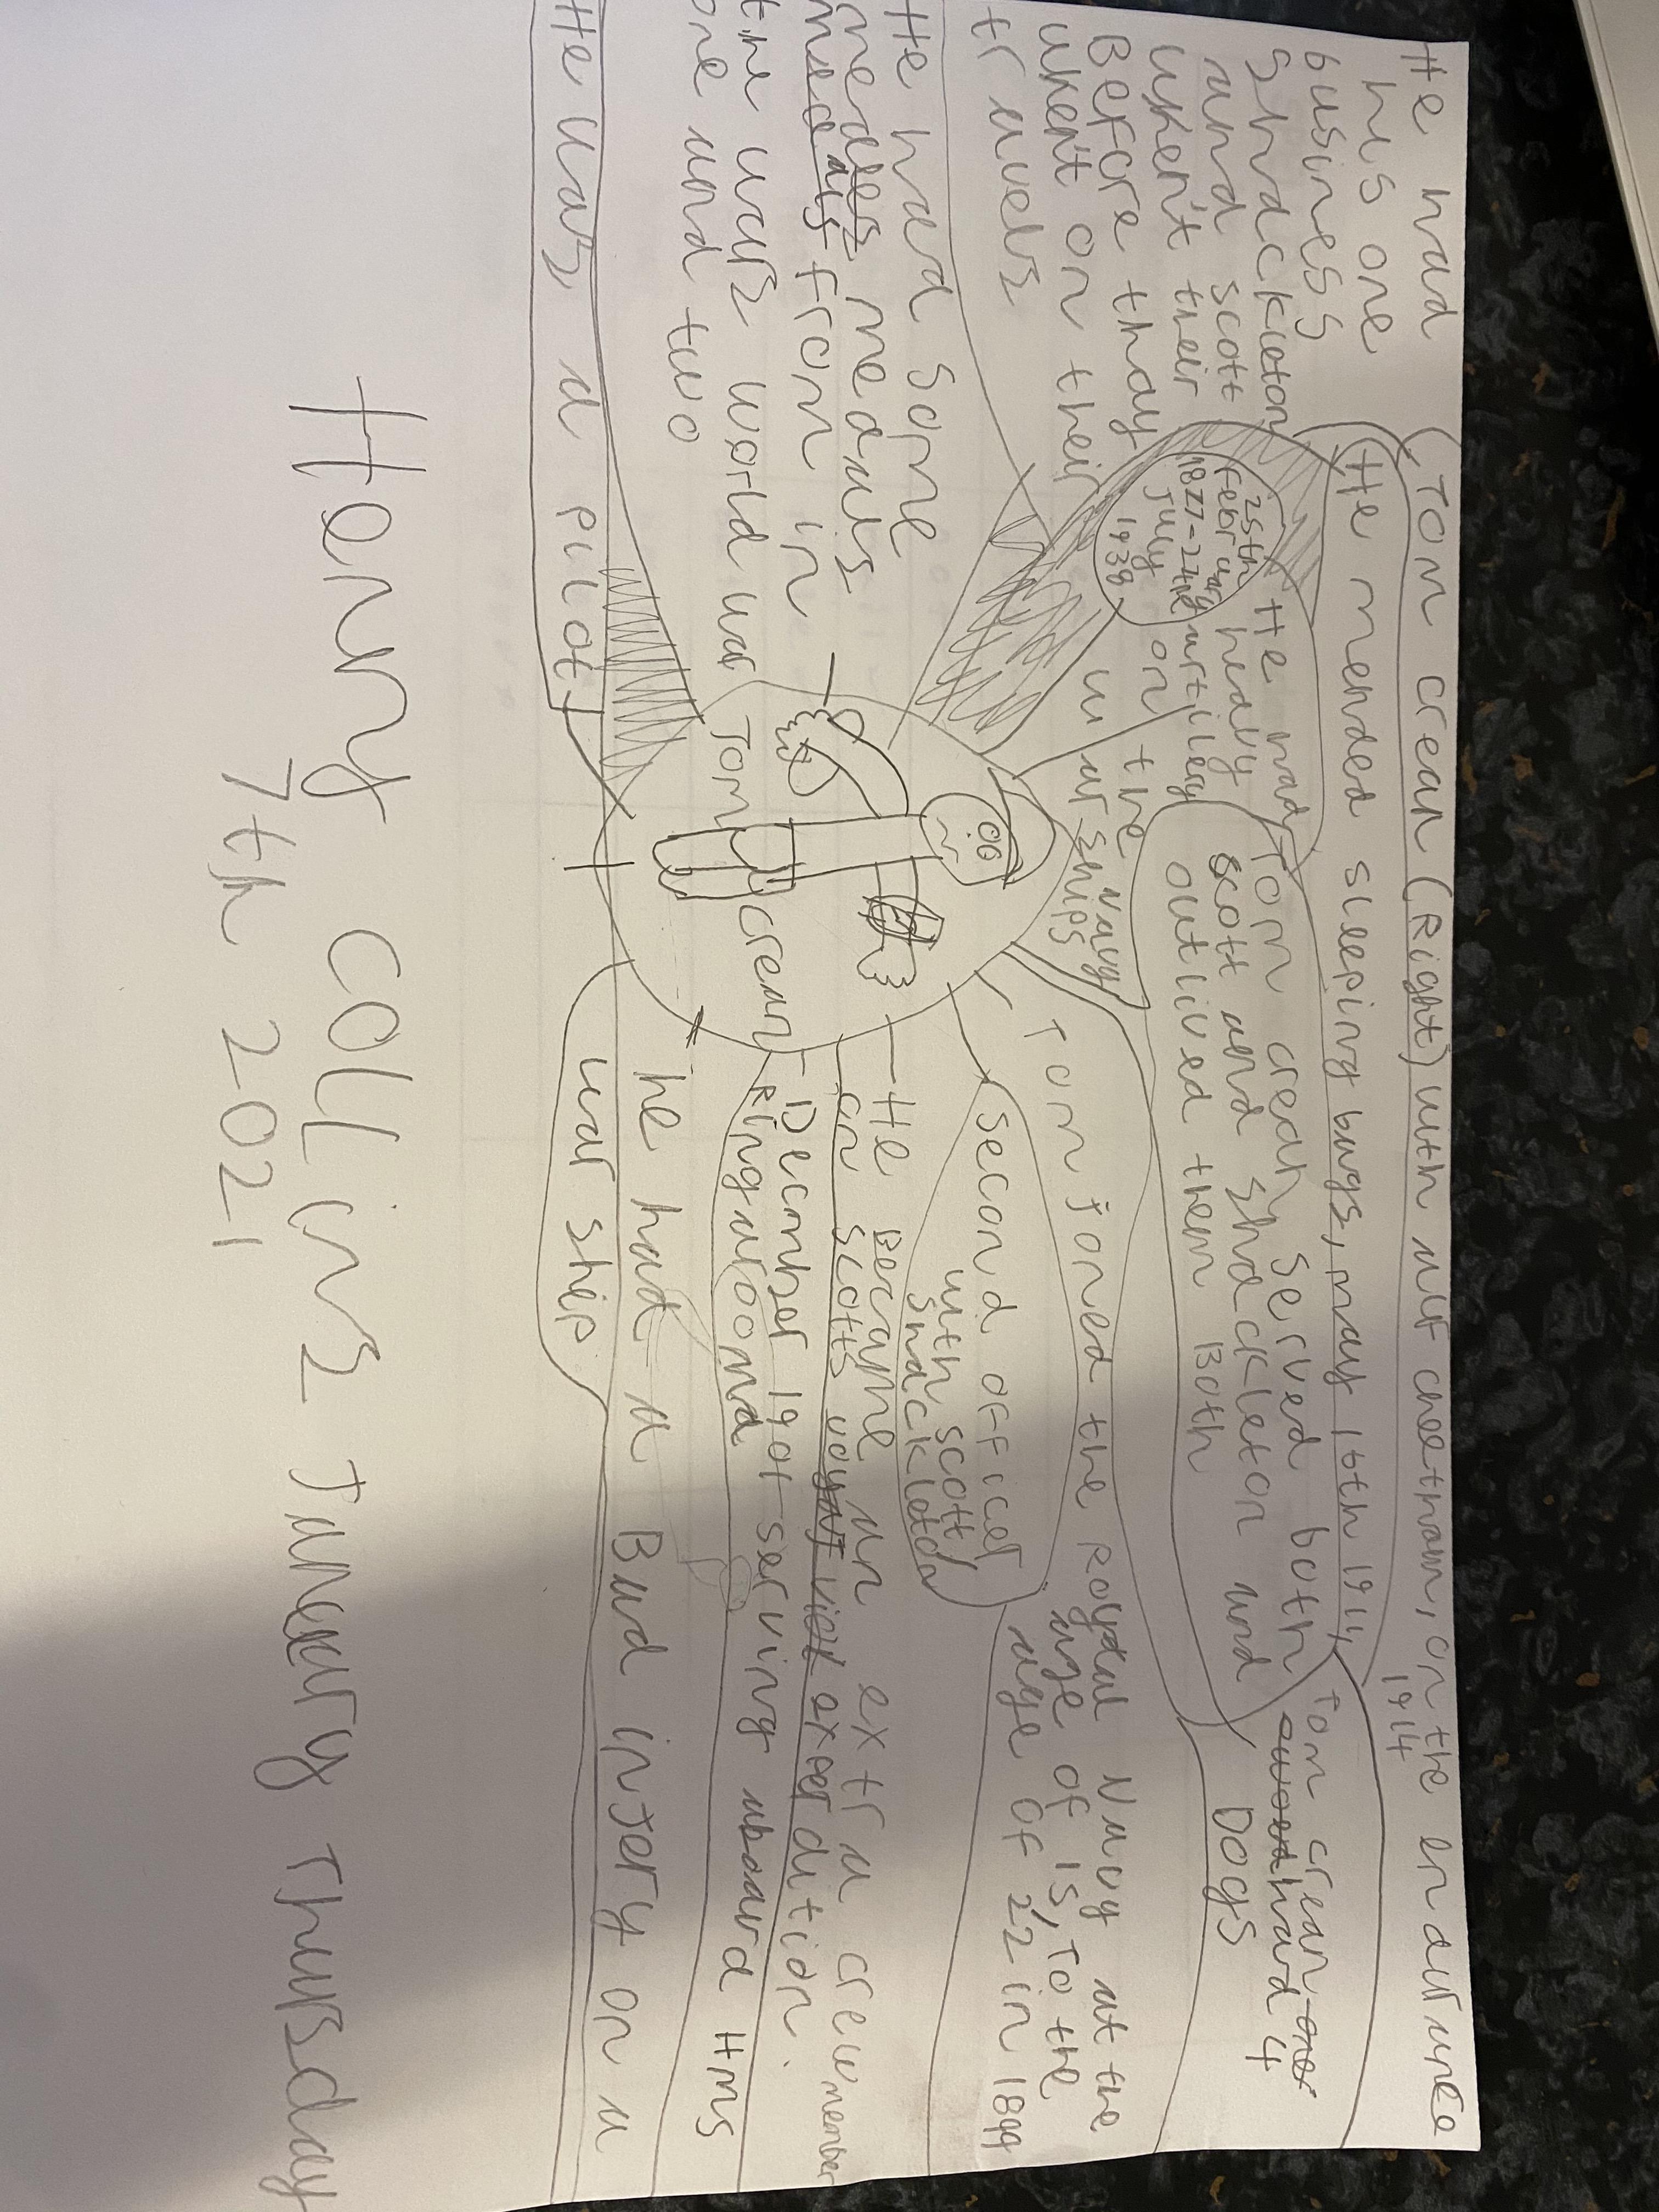 (Tom crean (Right) with alf cheetham, on the endurance
1914
He mended sleeping bags, may 16th 1914,
He had
his one
business
Shackleton
and scott
uken't their
Before thay
uken't on their
travels
25th
February
1877-24th
July
1938
He had
heavy
artilery
on
the
war ships
Navy
Tom crean served both
scott and shackleton and
outlived them Both
Tom crean
had 4
Dogs
Tom Joned the royal Navy at the
age of 15, To the
age of 22 in 1899
second officer
with scott/
shackleton
-He Became an extra crewmember
on scotts expedition.
-December 1901-serving aboard Hms
Ringarooma
he had a Bad injery on a
war ship
He had some
medals
from in
the wars world war
one and two
He was a pilot
Tom crean
Henry Collins Januery Thursday
7th 2021